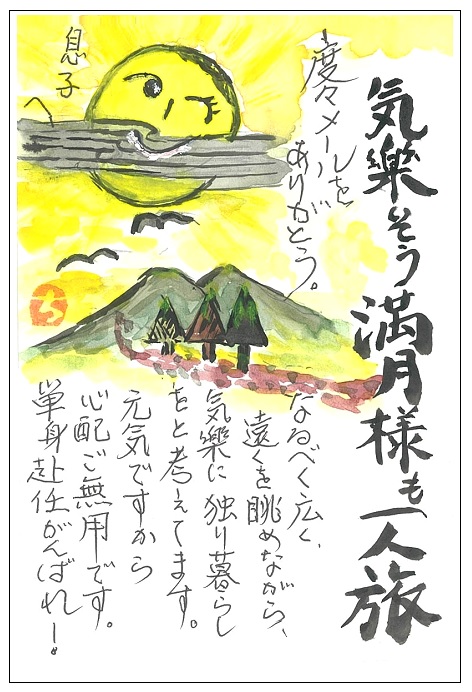 気樂そう満月様も一人旅
度々メールを
ありがとう。
息子
へ
なるべく広く、
遠くを眺めながら、
気樂に独り暮らし
をと考えてます。
元気ですから
心配ご無用です。
単身赴任がんばれー!
ち